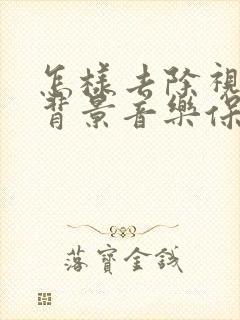 怎樣去除視
背景音樂保
落寶金錢